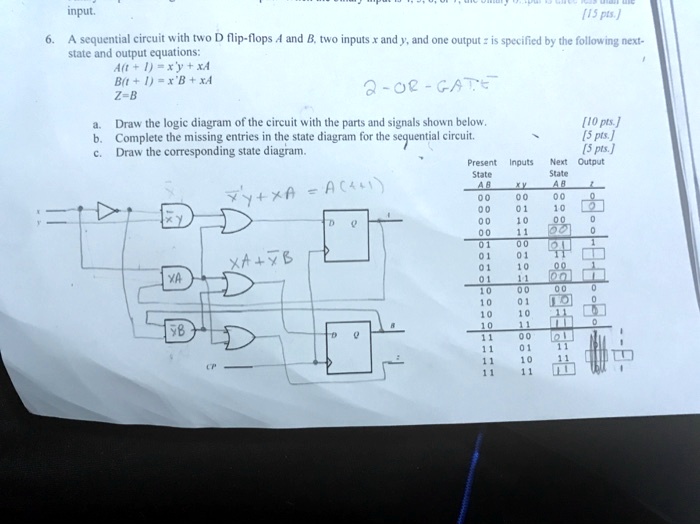 input.
[15 pts.]
6. A sequential circuit with two D flip-flops A and B, two inputs x and y, and one output z is specified by the following next-
state and output equations:
A(t + 1) = x'y + xA
B(t + 1) = x'B + xA
Z=B
2-OR-GATE
a. Draw the logic diagram of the circuit with the parts and signals shown below. [10 pts.]
b. Complete the missing entries in the state diagram for the sequential circuit. [5 pts.]
c. Draw the corresponding state diagram. [5 pts.]
Present Inputs Next Output
State State
A B x y A B z
0 0 0 0 0 0 0
0 0 0 1 1 0 0
0 0 1 0 0 0 0
0 0 1 1 0 0 0
0 1 0 0 0 1 1
0 1 0 1 1 1
0 1 1 0 0 0 1
0 1 1 1 0 0 1
1 0 0 0 0 0 0
1 0 0 1 1 0 0
1 0 1 0 1 1 0
1 0 1 1 1 1 0
1 1 0 0 0 1 1
1 1 0 1 1 1 1
1 1 1 0 1 1 1
1 1 1 1 1 1 1
x'y + xA = A(t+1)
x̅y
D Q
xA + x̅B
XA
x̅B
D Q
CP